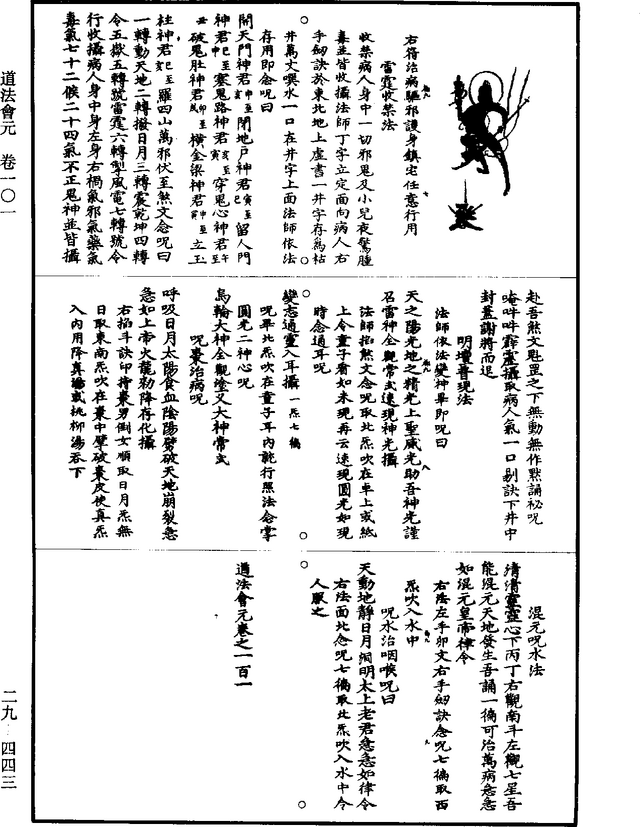 右符治病驅邪護身鎮宅任意行用
雷霆收禁法
收禁病人身中一切邪鬼及小兒夜驚腫
毒並皆收攝法師丁字立定面向病人右
手劒訣於東北地上虛書一井字存為枯
井萬丈噀水一口在井字上面法師依法
存用即念呪曰
開天門神君亥至申閉地戶神君寅至巳留人門
神君申至巳塞鬼路神君寅至亥穿鬼心神君至午
丑破鬼肚神君卯至戌橫金梁神君申至寅立玉
柱神君至羅四山萬邪伏至煞文念呪曰
一轉動天地二轉撥日月三轉震乾坤四轉
令五嶽五轉號雷霆六轉掣風電七轉號令
行收攝病人身中身左身右禍氣邪氣藥氣
毒氣七十二候二十四氣不正鬼神並皆攝
赴吾煞文魁罡之下無動無作默誦秘呪
唵吽吽霹靂攝取病人氣一口剔訣下井中
封蓋謝將而退
明壇普現法
法師依法變神畢即呪曰
天之陽光地之精光上聖威光助吾神光謹
召雷神全觀常式速現神光攝
法師掐煞文念呪取北炁吹在卓上或紙
上令童子看如未現再云速現圓光如現
時念通耳呪
變志通靈入耳攝一炁七徧
呪畢北炁吹在童子耳內說行照法念掌
圓光二神心呪
烏輪大神全觀塗叉大神常式
呪棗治病呪
呼吸日月太陽食血陰陽劈破天地崩裂急
急如上帝火龍勑降存化攝
右掐斗訣印持棗男倒女順取日月炁無
日取東南炁吹在棗中擘破棗皮使真炁
入內用降真湯或桃柳湯吞下
混元呪水法
清清靈靈心下丙丁右觀南斗左觀七星吾
能混元天地發生吾誦一徧可治萬病急急
如混元皇帝律令
右法左手卯文右手劒訣念呪七徧取西
炁吹入水中
呪水治咽喉呪曰
天動地靜日月洞明太上老君急急如律令
右法面北念呪七徧取北炁吹入水中令
人服之
道法會元卷之一百一
道法會元 卷一〇一
二九 四四三